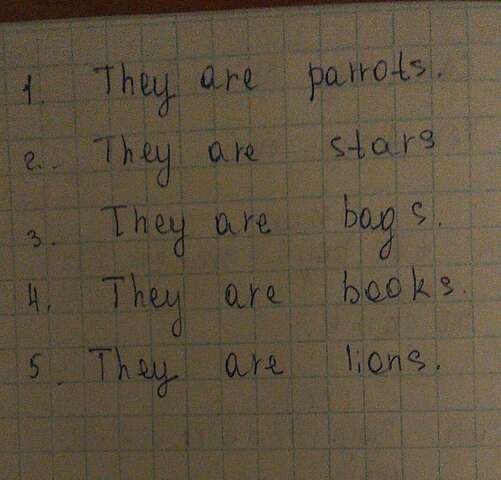 1. They are parrots.
2. They are stars
3. They are bags.
4. They are books.
5. They are lions.